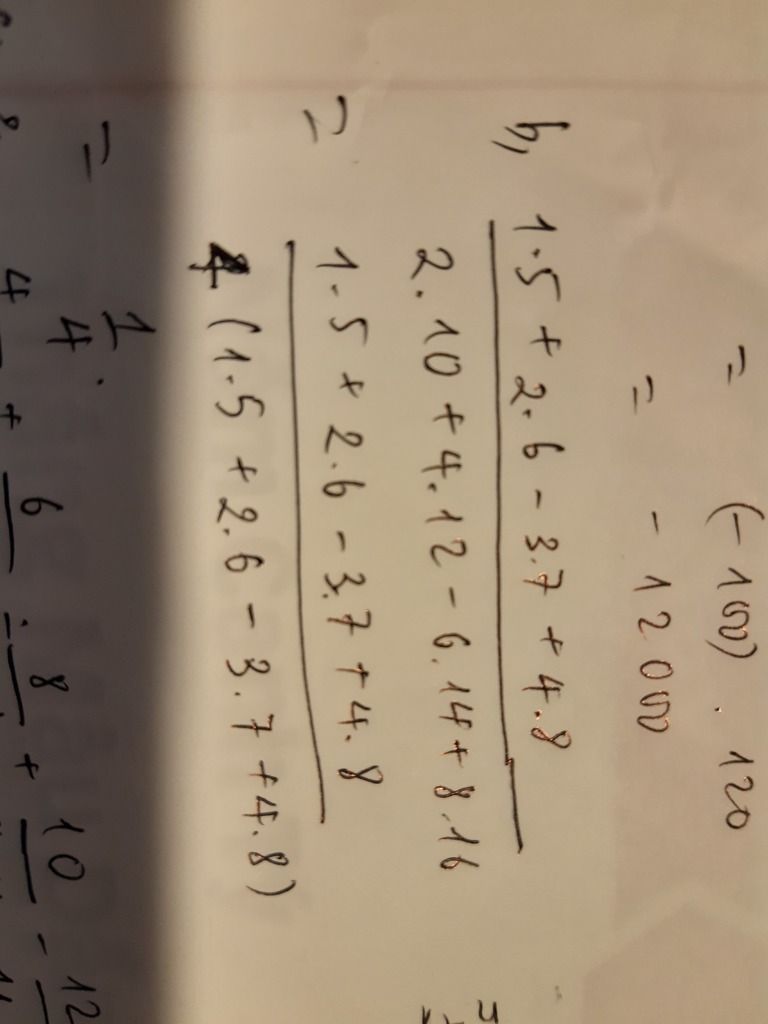 = (-100) . 120
= - 12000
b, 1.5 + 2.6 - 3.7 + 4.8
2.10 + 4.12 - 6.14 + 8.16
= 1.5 + 2.6 - 3.7 + 4.8
4 (1.5 + 2.6 - 3.7 + 4.8)
= 1
4 .
6 8 10 12
4 + - + -